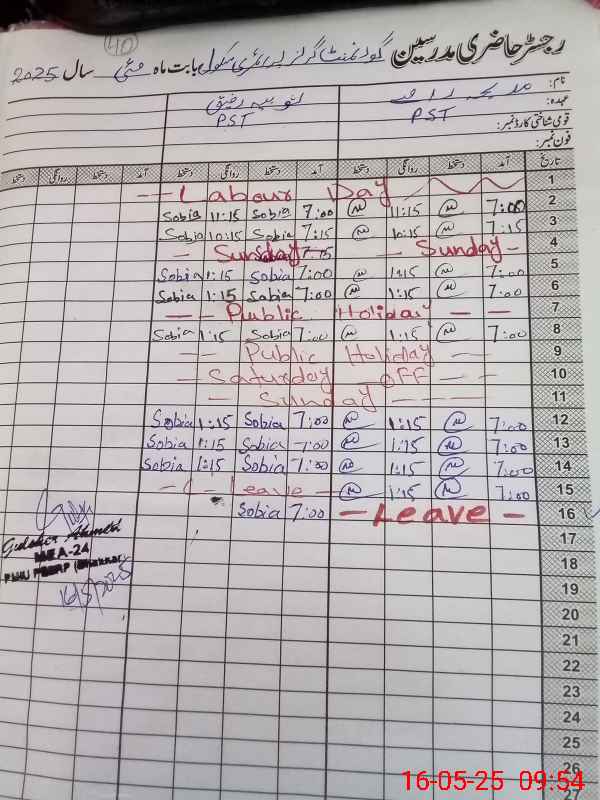 40
رجسٹر حاضری مدرسین گورنمنٹ گرلز پرائمری سکول بابت ماہ مئی سال 2025
نام:
ثوبیہ رفیق
عہدہ: PST PST
قومی شناختی کارڈ نمبر:
فون نمبر:
تاریخ آمد دستخط روانگی دستخط آمد دستخط روانگی دستخط آمد دستخط روانگی دستخط
— — Labour Day 1
Sobia 11:15 Sobia 7:00 11:15 7:00 2
Sobia 10:15 Sobia 7:15 10:15 7:15 3
— Sunday — Sunday — 4
Sobia 1:15 Sobia 7:00 1:15 7:00 5
Sobia 1:15 Sobia 7:00 1:15 7:00 6
— — Public Holiday — — 7
Sobia 1:15 Sobia 7:00 1:15 7:00 8
— — Public Holiday — — 9
— Saturday OFF — 10
— Sunday — — — 11
Sobia 1:15 Sobia 7:00 1:15 7:00 12
Sobia 1:15 Sobia 7:00 1:15 7:00 13
Sobia 1:15 Sobia 7:00 1:15 7:00 14
Leave — 1:15 7:00 15
Sobia 7:00 — Leave — 16
17
MEA-24
18
16/5/2025
19
20
21
22
23
24
25
26
27
16-05-25 09:54